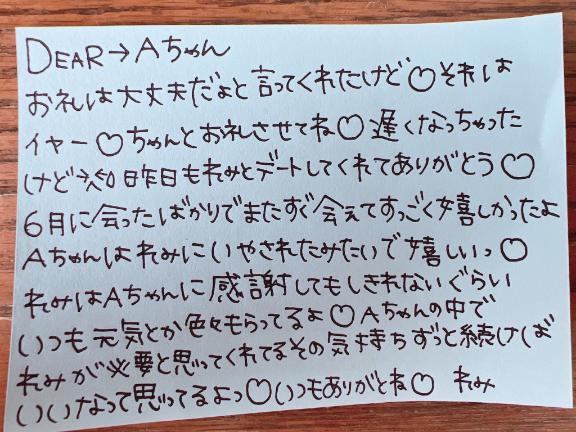 DEAR→Aちゃん
お礼は大丈夫だよと言ってくれたけど♡それは
イヤー♡ちゃんとお礼させてね♡遅くなっちゃった
けど 昨日もれみとデートしてくれてありがとう♡
6月に会ったばかりでまたすぐ会えてすっごく嬉しかったよ
Aちゃんはれみにいやされたみたいで嬉しいっ♡
れみはAちゃんに感謝してもしきれないぐらい
いつも元気とか色々もらってるよ♡Aちゃんの中で
れみが必要と思ってくれてるその気持ちずっと続けば
いいなって思ってるよっ♡いつもありがとね♡ れみ